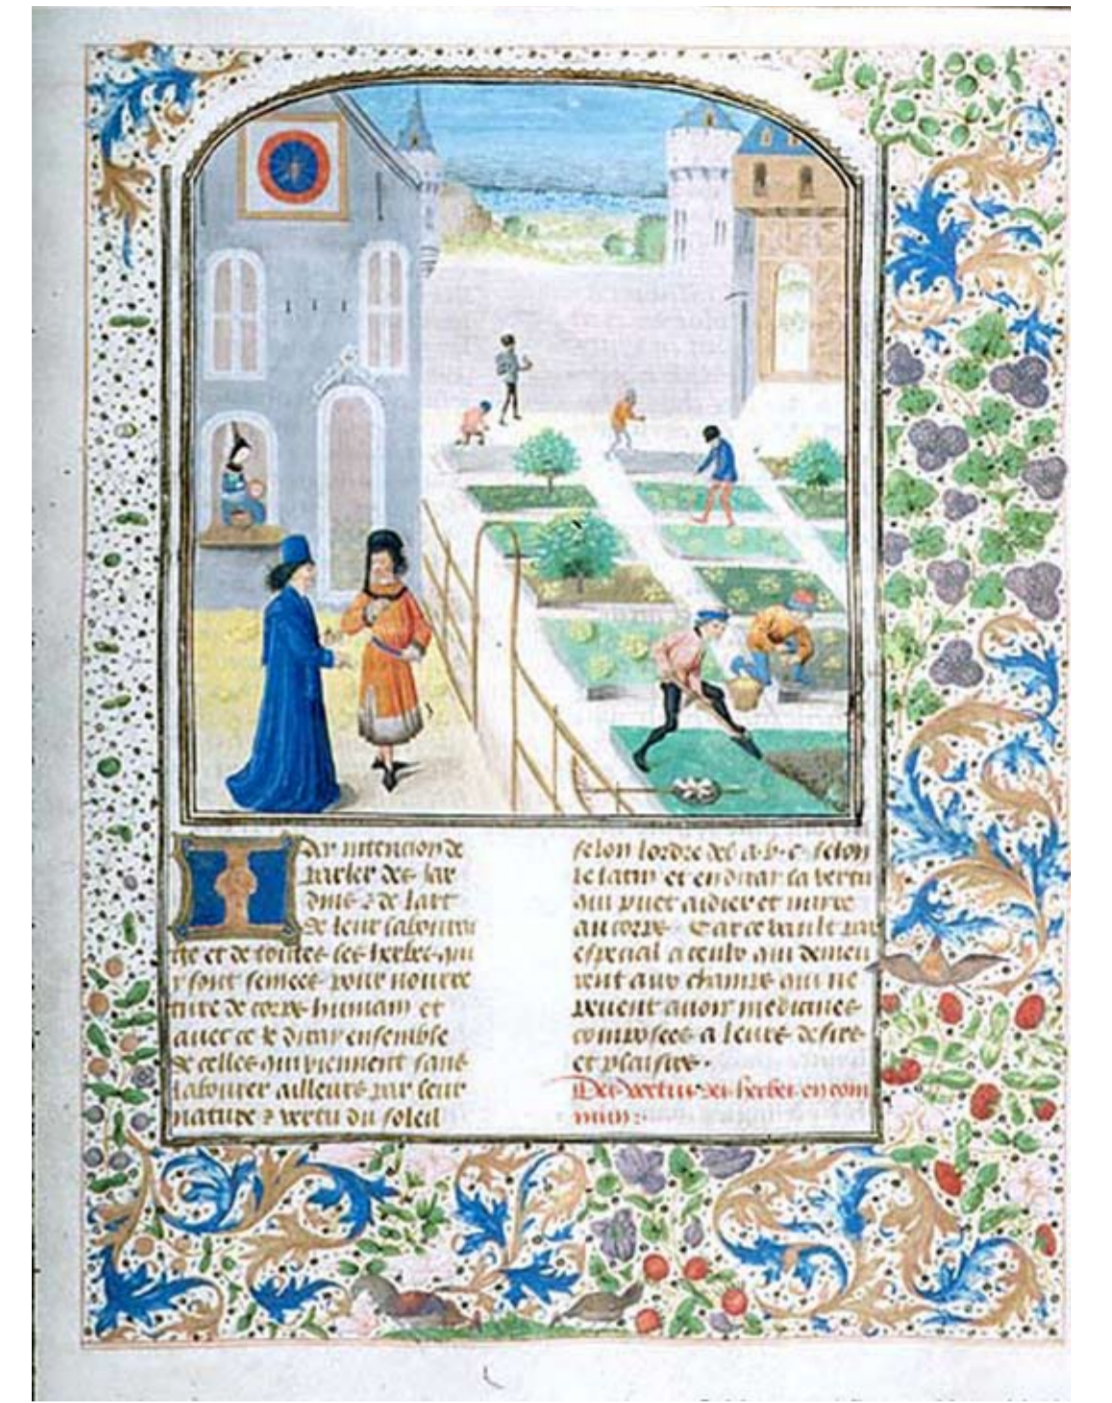 Ay intencion de
parler des Jar
dins & de lart
de leur labourai
ge et de toutes les herbes qui
y sont semees pour nourre
ture de corps humain et
auec ce ie diray ensemble
de celles qui viennent sans
labourer ailleurs par leur
nature & vertu du soleil
selon lordre del a.b.c. selon
le latin et en diray la vertu
qui puet aidier et nuyre
au corps Car ce vault par
especial a ceulx qui demeu
rent aux champs qui ne
peuent auoir medicines
composees a leurs desirs
et plaisirs.
Des vertus des herbes en com
mun: